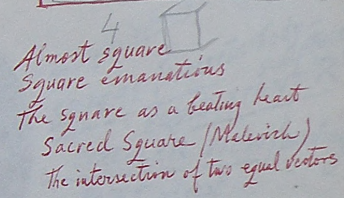 4
Almost square
Square emanations
The square as a beating heart
Sacred Square (Malevich)
The intersection of two equal vectors